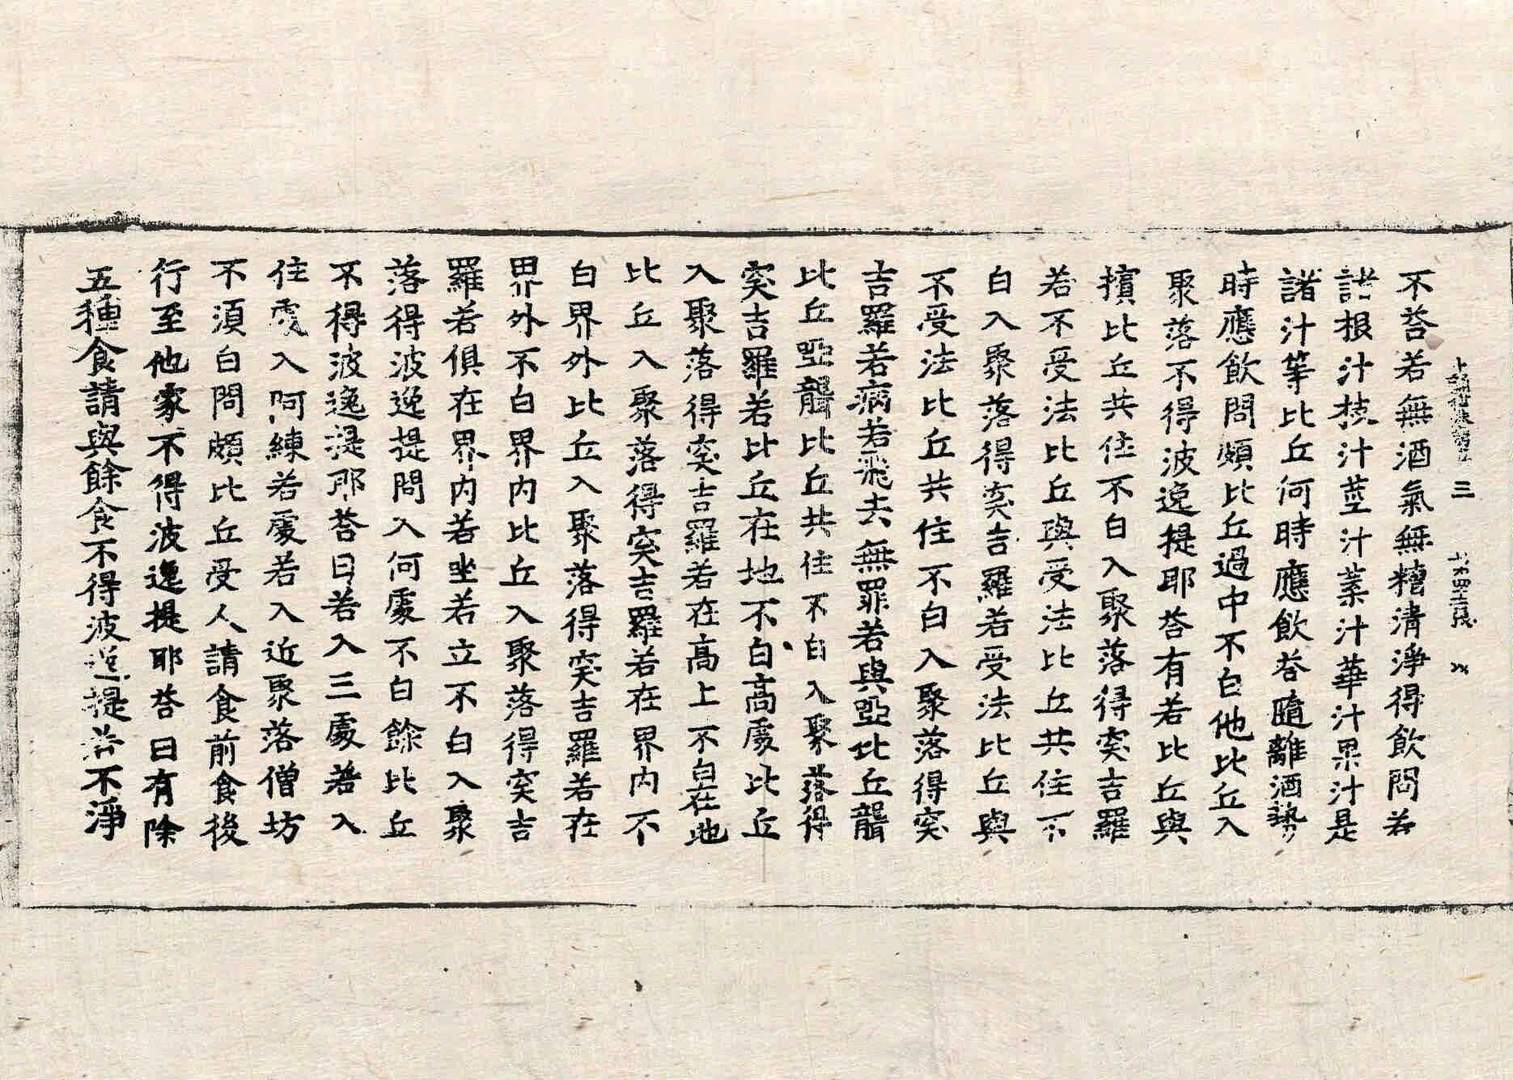 不荅若無酒氣無糟清淨得飲問若
諸根汁枝汁莖汁葉汁華汁果汁是
諸汁等比丘何時應飲荅隨離酒勢
時應飲問頗比丘過中不白他比丘入
聚落不得波逸提耶荅有若比丘與
擯比丘共住不白入聚落得突吉羅
若不受法比丘與受法比丘共住不
白入聚落得突吉羅若受法比丘與
不受法比丘共住不白入聚落得突
吉羅若病若飛去無罪若與啞比丘聾
比丘啞聾比丘共住不白入聚落得
突吉羅若比丘在地不白高處比丘
入聚落得突吉羅若在高上不白在地
比丘入聚落得突吉羅若在界內不
白界外比丘入聚落得突吉羅若在
界外不白界內比丘入聚落得突吉
羅若俱在界內若坐若立不白入聚
落得波逸提問入何處不白餘比丘
不得波逸提耶荅曰若入三處若入
住處入阿練若處若入近聚落僧坊
不須白問頗比丘受人請食前食後
行至他家不得波逸提耶荅曰有除
五種食請與餘食不得波逸提若不淨
三